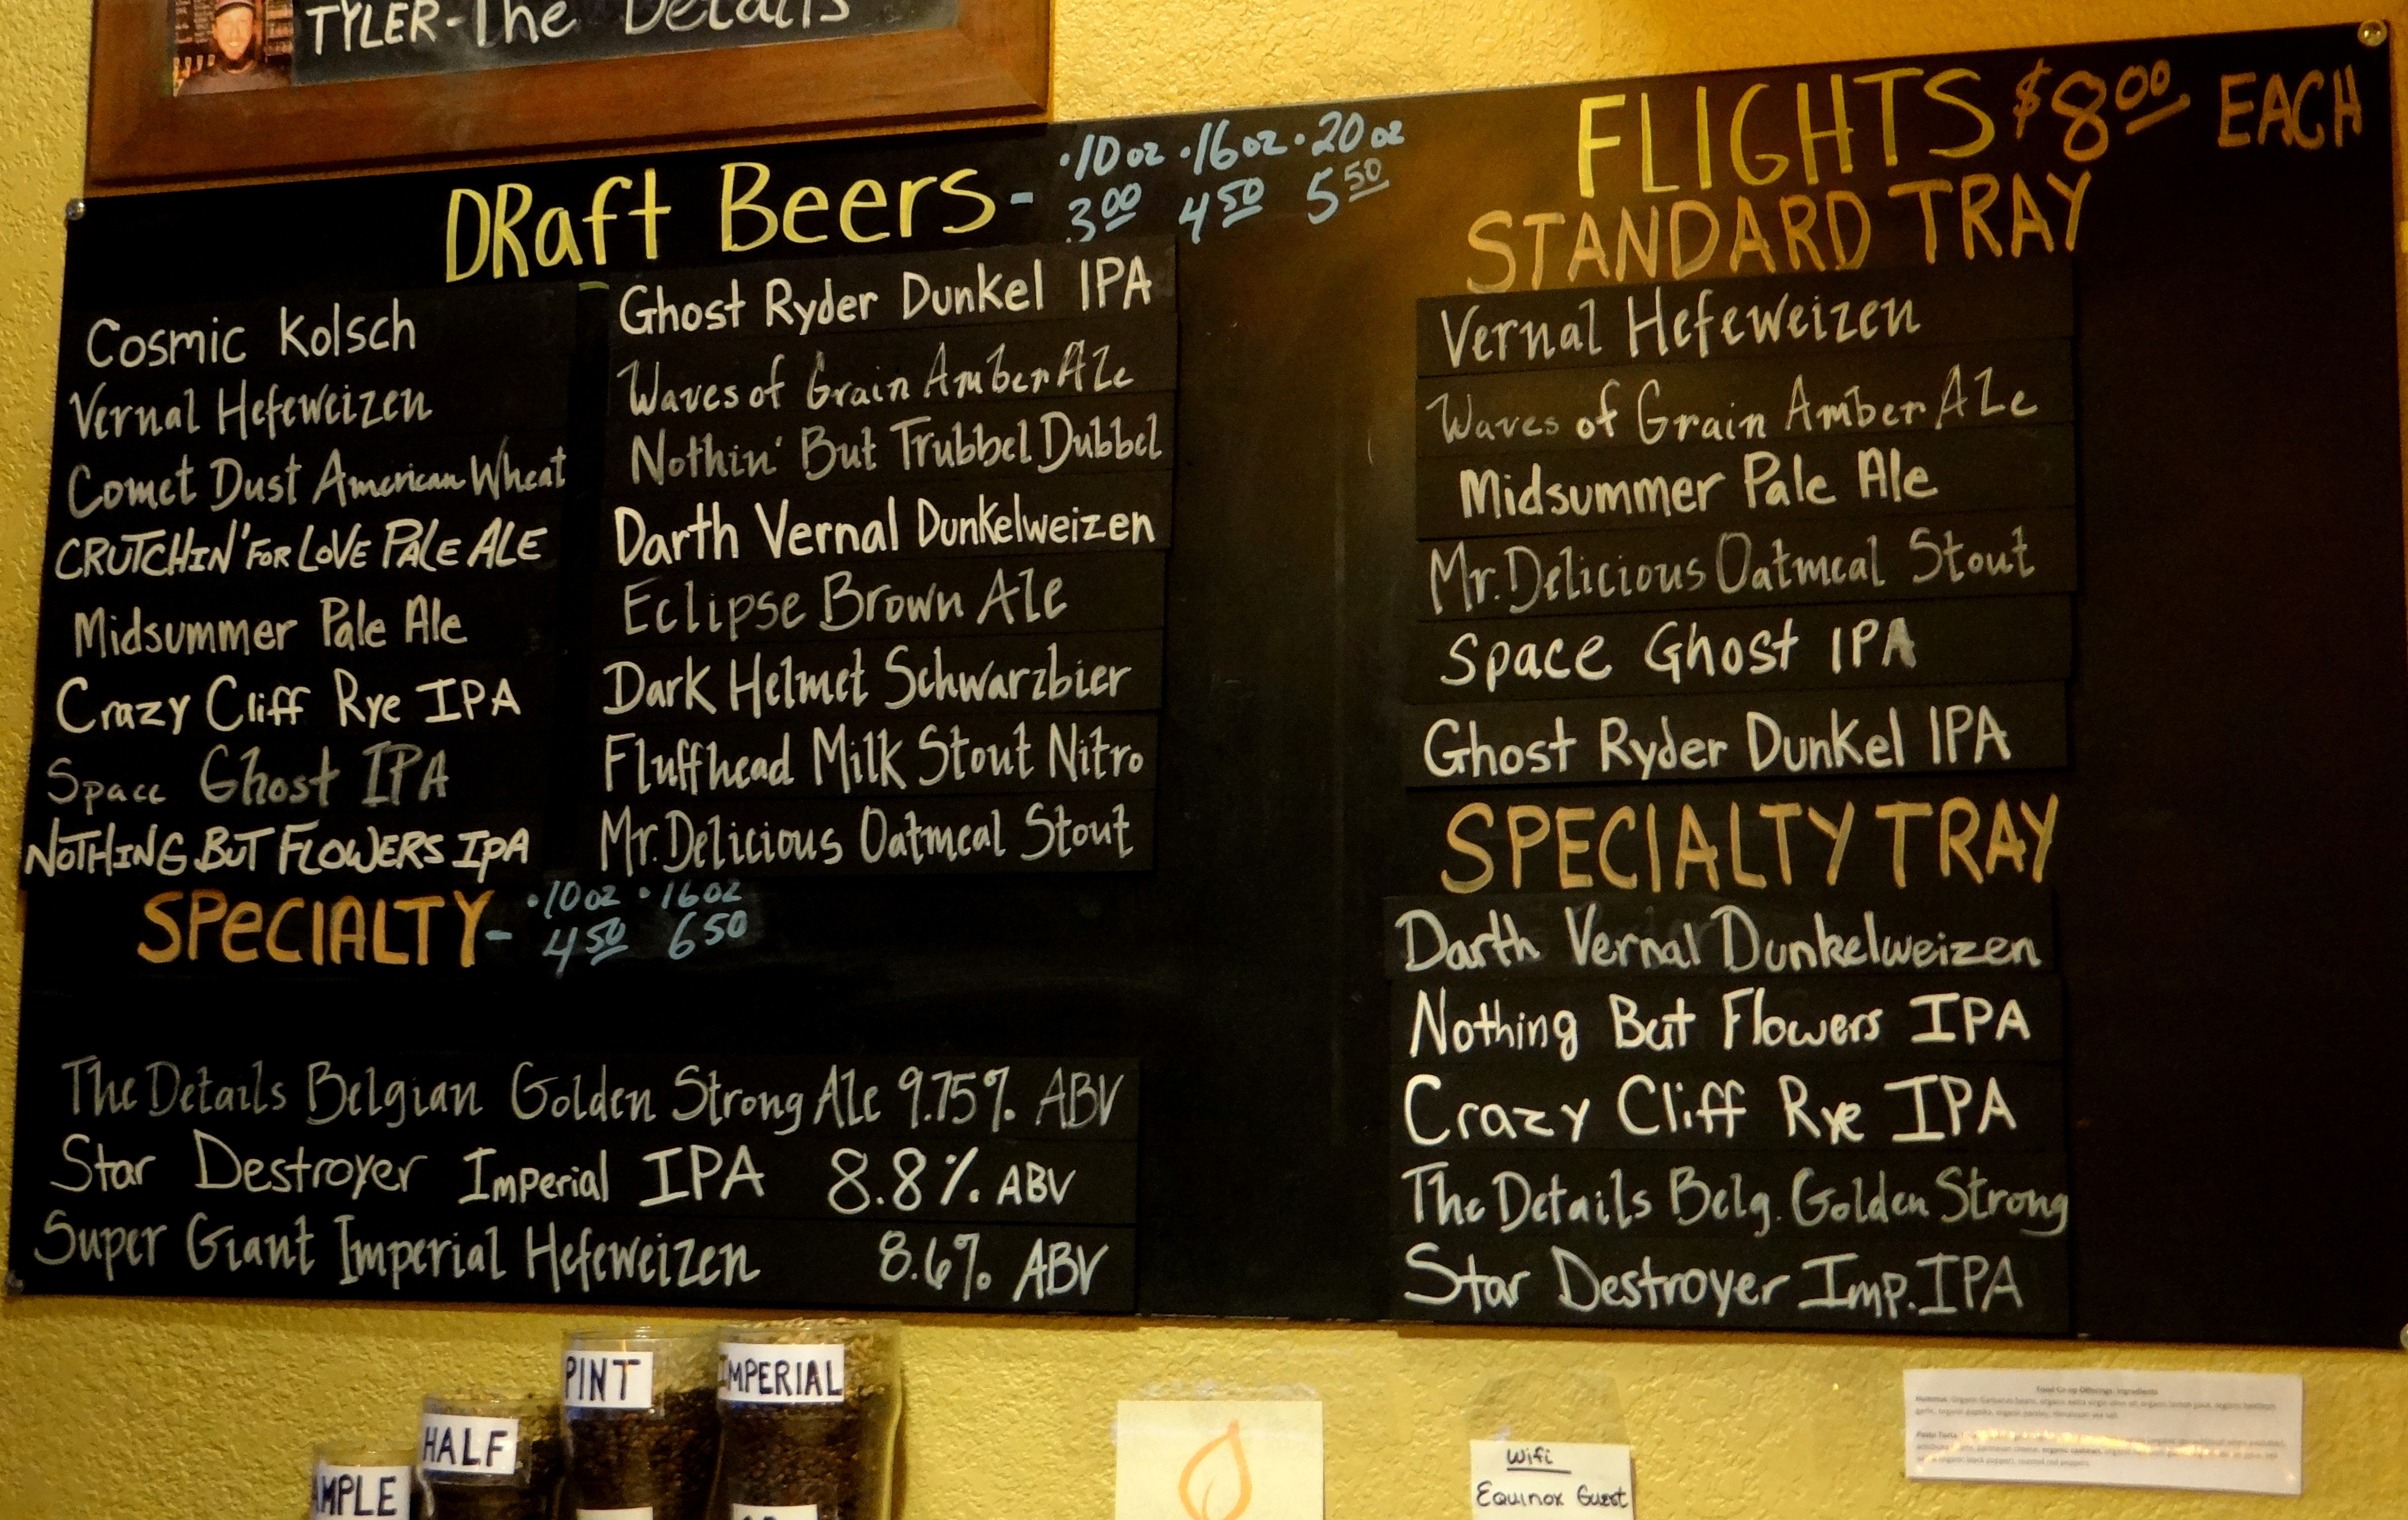 TYLER-The Details
DRaft Beers-
·10oz ·16oz ·20oz
3.00 4.50 5.50
Cosmic Kolsch
Vernal Hefeweizen
Comet Dust American Wheat
CRUTCHIN' FOR LOVE PALE ALE
Midsummer Pale Ale
Crazy Cliff Rye IPA
Space Ghost IPA
NOTHING BUT FLOWERS IPA
Ghost Ryder Dunkel IPA
Waves of Grain Amber Ale
Nothin' But Trubbel Dubbel
Darth Vernal Dunkelweizen
Eclipse Brown Ale
Dark Helmet Schwarzbier
Fluffhead Milk Stout Nitro
Mr. Delicious Oatmeal Stout
SPeCIALTY-
·10oz ·16oz
4 50 6 50
The Details Belgian Golden Strong Ale 9.75% ABV
Star Destroyer Imperial IPA 8.8% ABV
Super Giant Imperial Hefeweizen 8.6% ABV
FLIGHTS $8.00 EACH
STANDARD TRAY
Vernal Hefeweizen
Waves of Grain Amber Ale
Midsummer Pale Ale
Mr. Delicious Oatmeal Stout
Space Ghost IPA
Ghost Ryder Dunkel IPA
SPECIALTY TRAY
Darth Vernal Dunkelweizen
Nothing But Flowers IPA
Crazy Cliff Rye IPA
The Details Belg. Golden Strong
Star Destroyer Imp. IPA
AMPLE
HALF
PINT
IMPERIAL
Wifi
Equinox Guest
Food Co-op Offerings: Ingredients